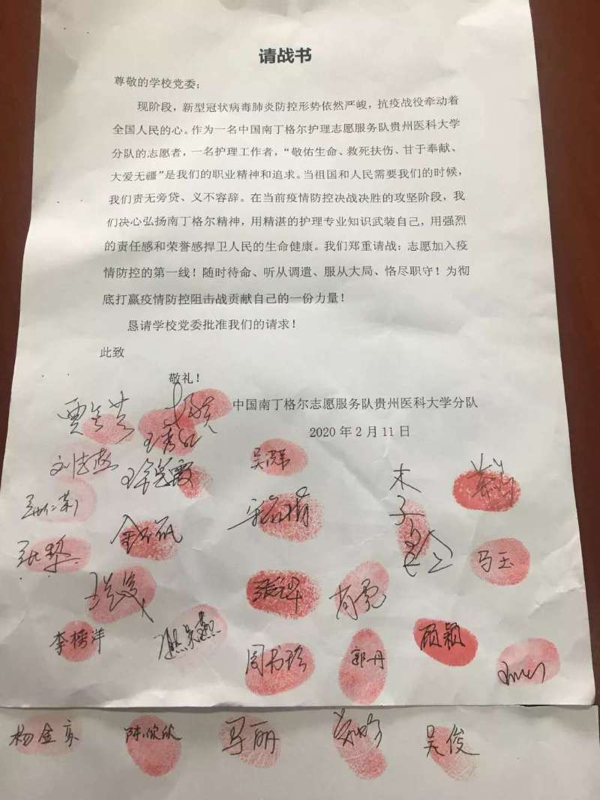 请战书
尊敬的学校党委：
现阶段，新型冠状病毒肺炎防控形势依然严峻，抗疫战役牵动着
全国人民的心。作为一名中国南丁格尔护理志愿服务队贵州医科大学
分队的志愿者，一名护理工作者，“敬佑生命、救死扶伤、甘于奉献、
大爱无疆”是我们的职业精神和追求。当祖国和人民需要我们的时候，
我们责无旁贷、义不容辞。在当前疫情防控决战决胜的攻坚阶段，我
们决心弘扬南丁格尔精神，用精湛的护理专业知识武装自己，用强烈
的责任感和荣誉感捍卫人民的生命健康。我们郑重请战：志愿加入疫
情防控的第一线！随时待命、听从调遣、服从大局、恪尽职守！为彻
底打赢疫情防控阻击战贡献自己的一份力量！
恳请学校党委批准我们的请求！
此致
敬礼！
中国南丁格尔志愿服务队贵州医科大学分队
2020 年 2 月 11 日
马玉
郭丹
顾颖
陈欣欣
马丽
吴俊